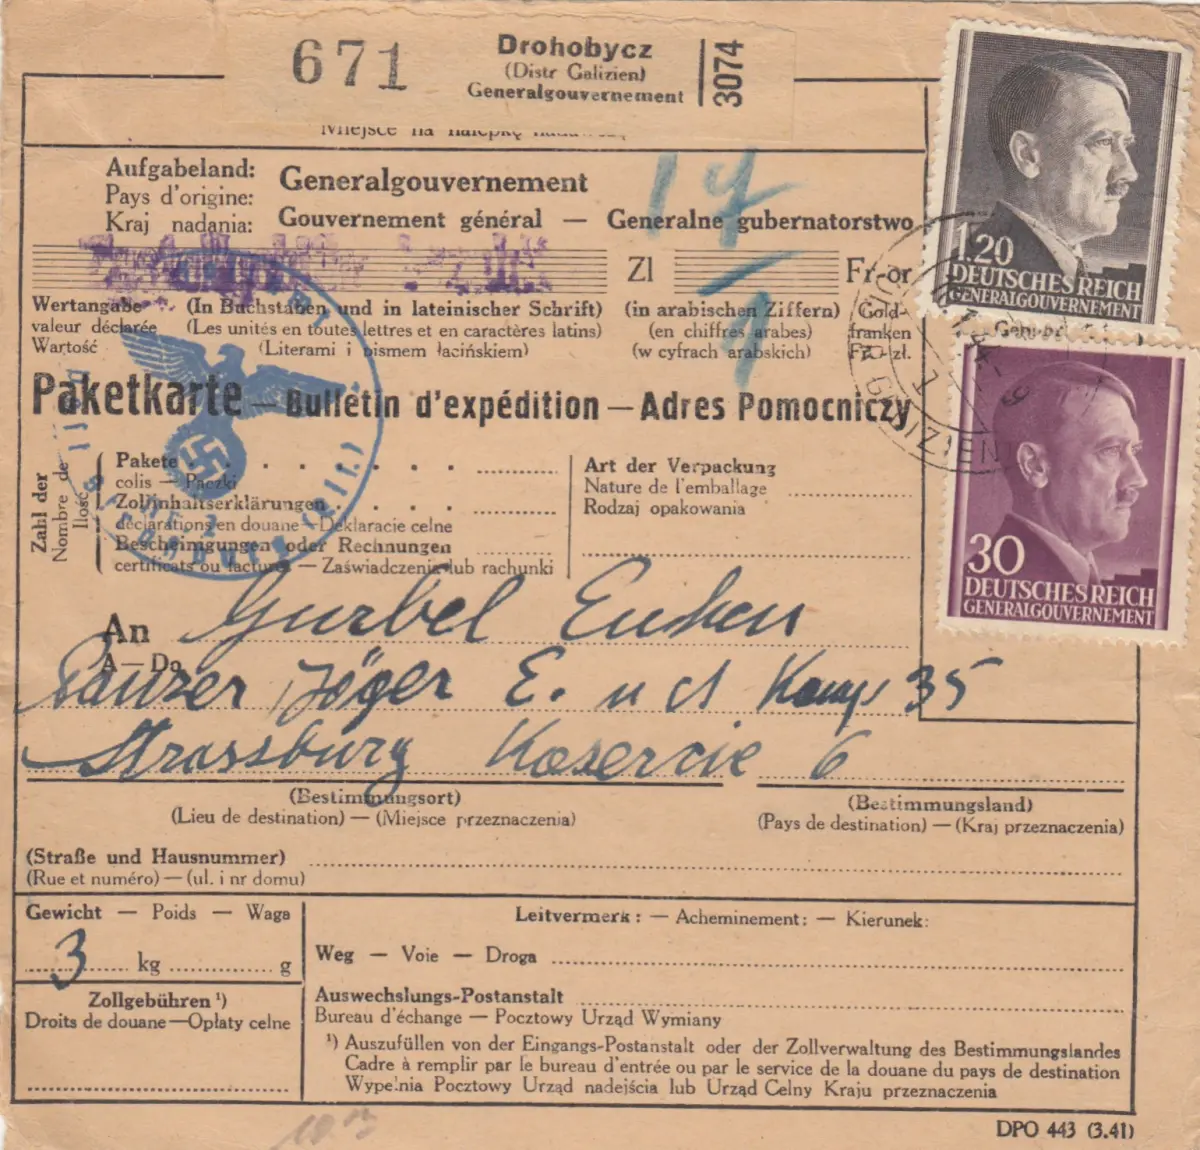 671
Drohobycz
(Distr Galizien)
Generalgouvernement
3074
Miejsce na nalepkę
Aufgabeland:
Pays d'origine:
Kraj nadania:
Generalgouvernement
Gouvernement général — Generalne gubernatorstwo
Zl
Fr-or
Wertangabe
valeur déclarée
Wartość
(In Buchstaben und in lateinischer Schrift)
(Les unités en toutes lettres et en caractères latins)
(Literami i pismem łacińskiem)
(in arabischen Ziffern)
(en chiffres arabes)
(w cyfrach arabskich)
Gold-
franken
Fr. zł.
1.20
DEUTSCHES REICH
GENERALGOUVERNEMENT
Gebühr
30
DEUTSCHES REICH
GENERALGOUVERNEMENT
Paketkarte — Bulletin d'expédition — Adres Pomocniczy
Zahl der
Nombre de
Ilość
Pakete
colis — Paczki
Zollinhaltserklärungen
déclarations en douane — Deklaracie celne
Bescheinigungen oder Rechnungen
certificats ou factures — Zaświadczenia lub rachunki
Art der Verpackung
Nature de l'emballage
Rodzaj opakowania
An
A — Do
Gurbel
Panzer Jäger E. und 35
Strassburg Kasercie 6
(Bestimmungsort)
(Lieu de destination) — (Miejsce przeznaczenia)
(Bestimmungsland)
(Pays de destination) — (Kraj przeznaczenia)
(Straße und Hausnummer)
(Rue et numéro) — (ul. i nr domu)
Gewicht — Poids — Waga
3 kg g
Zollgebühren ¹)
Droits de douane — Opłaty celne
Leitvermerk : — Acheminement : — Kierunek:
Weg — Voie — Droga
Auswechslungs-Postanstalt
Bureau d'échange — Pocztowy Urząd Wymiany
¹) Auszufüllen von der Eingangs-Postanstalt oder der Zollverwaltung des Bestimmungslandes
Cadre à remplir par le bureau d'entrée ou par le service de la douane du pays de destination
Wypełnia Pocztowy Urząd nadejścia lub Urząd Celny Kraju przeznaczenia
DPO 443 (3.41)